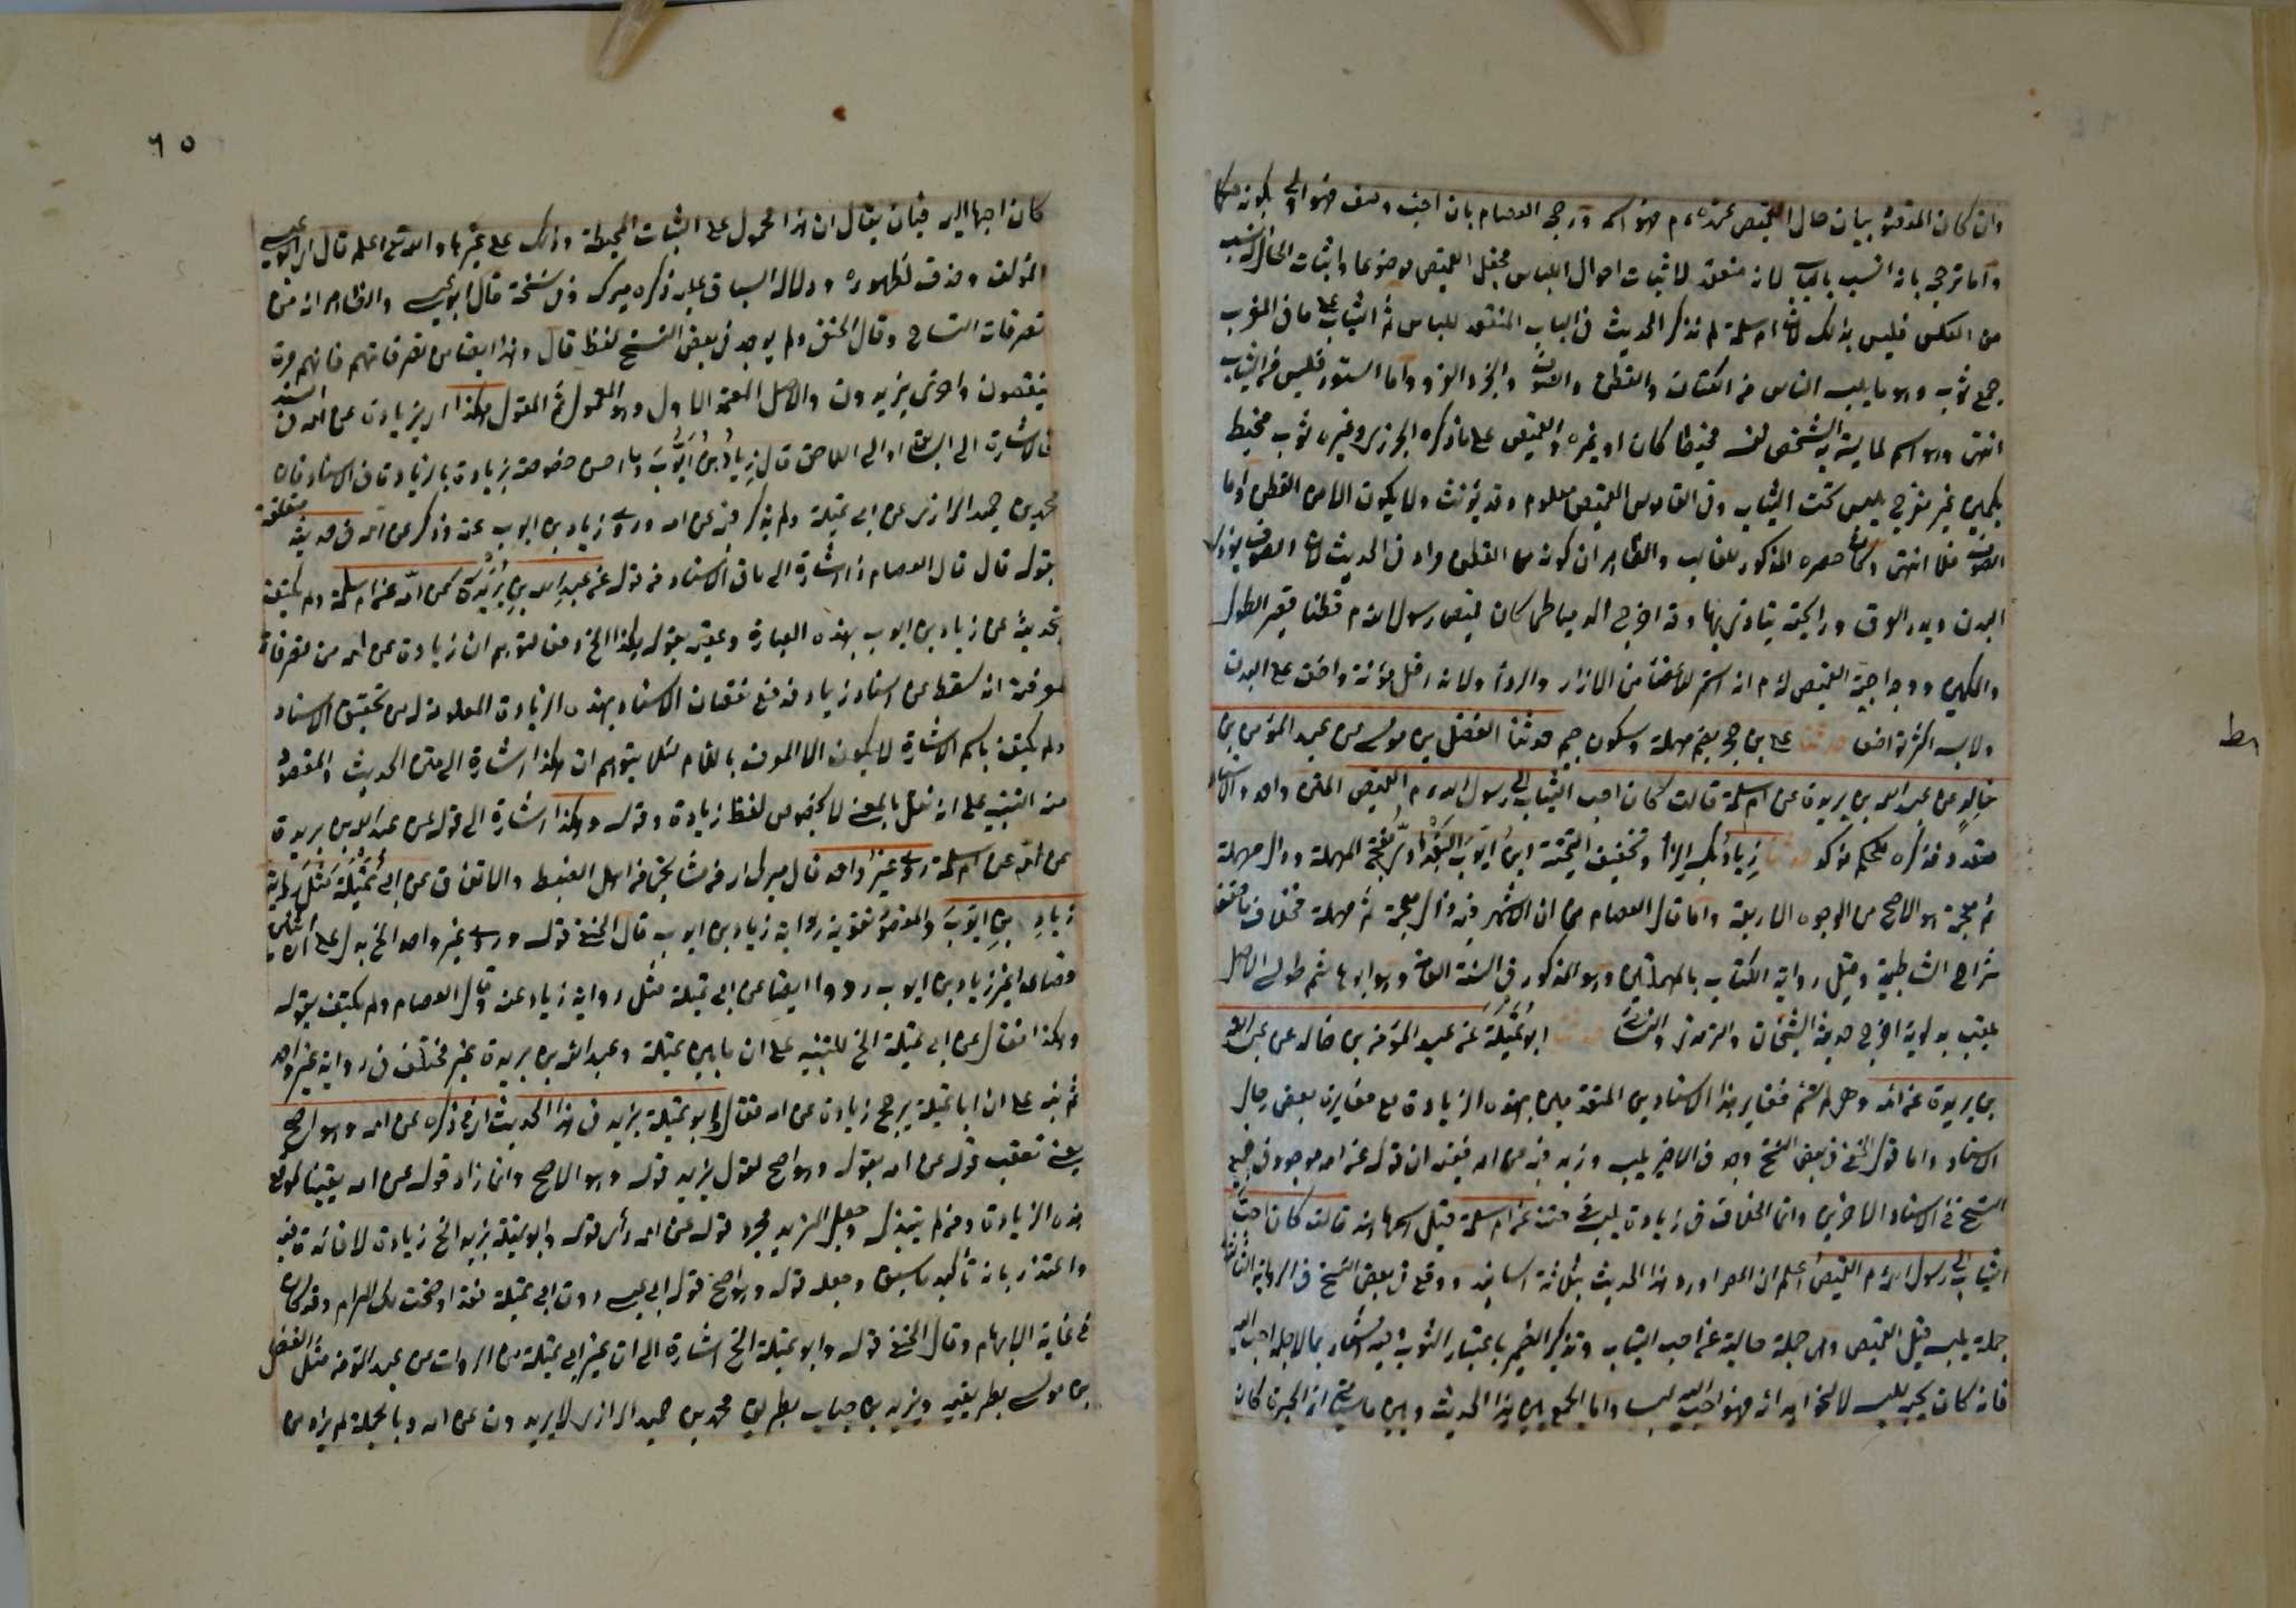 وان كان المقصود بيان حال القميص عنده م فهو اسم ورجح العصام بان احب وصف فهو اولى بكونه حكما
واما ترجيحه بانه انسب بالباب لانه منعقد لاثبات احوال اللباس فجعل القميص موضوعا واثبات الحال له انسب
من العكس فليس بذلك لان ام سلمة لم تذكر الحديث في الباب المنعقد للباس ثم الثياب على ما في المغرب
جمع ثوب وهو ما يلبسه الناس من الكتان والقطن والصوف والخز والفرو واما الستور فليس من الثياب
انتهى وهو اسم لما يستر به الشخص نفسه مخيطا كان او غيره والقميص على ما ذكره الجزري وغيره ثوب مخيط
بكمين غير مفرج يلبس تحت الثياب وفي القاموس القميص معلوم وقد يؤنث ولا يكون الا من القطن واما
الصوف فلا انتهى وكأن حصره المذكور للغالب والظاهر ان كونه من القطن مراد في الحديث لان الصوف يؤذي
البدن ويدر العرق ورائحته يتأذى بها وقد اخرج الدمياطي كان قميص رسول الله م قطنا قصير الطول
والكمين ووجه احبية القميص له م انه استر للاعضاء من الازار والرداء ولانه اقل مؤنة واخف على البدن
ولابسه اكثر تواضعا حدثنا علي بن حجر بضم مهملة وسكون جيم حدثنا الفضل بن موسى عن عبد المؤمن بن
خالد عن عبد الله بن بريدة عن ام سلمة قالت كان احب الثياب الى رسول الله م القميص المتن واحد والاسناد
متعدد فذكره للحكم مؤكد حدثنا زياد بكسر الزاء وتخفيف التحتية ابن ايوب البغدادي بفتح المهملة ودال مهملة
ثم معجمة هو الاصح من الوجوه الاربعة واما قول العصام من ان الاشهر فيه دال معجمة ثم مهملة فخلاف ما حققه
شراح الشاطبية وقيل رواية الكتاب بالمهملتين وهو المذكور في السنة العامة وهو ابو هاشم طوسي الاصل
يلقب بدلويه اخرج حديثه الشيخان والترمذي والنسائي حدثنا ابو تميلة عن عبد المؤمن بن خالد عن عبد الله
بن بريدة عن امه فغاير هذا الاسنادين المتقدمين بهذه الزيادة مع مغايرة بعض رجال
الاسناد واما قول الحنفي في بعض النسخ وجد في الاخير يلبسه وزيد فيه عن امه فيفيد ان قوله عن امه موجود في جميع
النسخ في الاسناد الاخير وانما الخلاف في زيادة يلبسه عن ام سلمة قيل اسمها هند قالت كان احب
الثياب الى رسول الله م القميص اعلم ان المص اورد هذا الحديث بثلاثة اسانيد ووقع في بعض النسخ في الرواية الثالثة
جملة يلبسه قبل القميص وهي جملة حالية عن احب الثياب وتذكير الضمير باعتبار الثوب وفيه اشعار بما لاجله احب اليه
فانه كان يحبه للبس لا لنحو اهدائه فهو احب اليه لبسا واما الجمع بين هذا الحديث وبين ما سيأتي ان الحبرة كان
٦٥
كان احبها اليه فبان يقال ان هذا محمول على الثياب المخيطة وذلك على غيرها والله تعالى اعلم قال ابو عيسى
المؤلف وحذف لظهوره ودلالة السياق عليه ذكره ميرك وفي نسخة قال ابو عيسى والظاهر انه من
تصرفات النساخ وقال الحنفي ولم يوجد في بعض النسخ لفظ قال وهذا ايضا من تصرفاتهم فانهم مرة
ينقصون واخرى يزيدون والاصل المعتمد الاول وهو المعول ثم المقول هكذا اي بزيادة عن امه في السند
فالاشارة الى السابق او الى اللاحق قال زياد بن ايوب وما احسن خصوصه بزيادة بالزيادة في الاسناد فان
محمد بن حميد الرازي عن ابي تميلة ولم يذكر فيه عن امه وروى زياد بن ايوب عنه وذكر عن امه في حديثه متعلقة
بقوله قال قال العصام ذا اشارة الى ما في الاسناد من قوله عن عبد الله بن بريدة عن امه عن ام سلمة ولم يكتف
بتحديثه عن زياد بن ايوب بهذه العبارة وعقبه بقوله هكذا الخ دفعا لتوهم ان زيادة عن امه من تصرفاته
لمعرفته انه سقط عن اسناد زياد فدفع نقصان الاسناد بهذه الزيادة المعلومة له من تحقيق الاسناد
ولم يكتف باسم الاشارة لا يكون الا المعرف باللام لئلا يتوهم ان هكذا اشارة الى متن الحديث والمقصود
منه التنبيه على انه نقل بالمعنى لا بخصوص لفظ زيادة وقوله وهكذا اشارة الى قوله عن عبد الله بن بريدة
عن امه عن ام سلمة روى غير واحد قال ميرك اي من مشايخي من اهل الضبط والاتقان عن ابي تميلة مثل رواية
زياد بن ايوب والمقصود تقوية رواية زياد بن ايوب قال الحنفي قوله وروى غير واحد الخ يدل على ان اثنين
فصاعدا غير زياد بن ايوب رووا ايضا عن ابي تميلة مثل رواية زياد عنه وقال العصام ولم يكتف بقوله
وهكذا فقال عن ابي تميلة الخ للتنبيه على ان ما بين تميلة وعبد الله بن بريدة غير مختلف في رواية غير واحد
ثم نبه على ان ابا تميلة يرجح زيادة عن امه فقال وابو تميلة يزيد في هذا الحديث اي ذكره عن امه وهو اصح
يعني تعقب قوله عن امه بقوله وهو اصح لقول يزيد قوله وهو الاصح وانما زاد قوله عن امه يقينا لموقع
هذه الزيادة ومن لم يتبينه جعل المزيد مجرد قوله عن امه رأى قوله وابو تميلة يزيد الخ زيادة لا فائدة فيه
واعتذر بانه تأكيد ما سبق وجعله قوله وهو اصح قول ابي عيسى دون ابي تميلة فقد اوضحت لك المرام وقد كان
في غاية الابهام وقال الحنفي قوله وابو تميلة الخ اشارة الى ان غير ابي تميلة من الرواة عن عبد المؤمن مثل الفضل
بن موسى بطريقيه وزيد بن حباب بطريق محمد بن حميد الرازي لا يزيدون عن امه وبالجملة لم يزد من